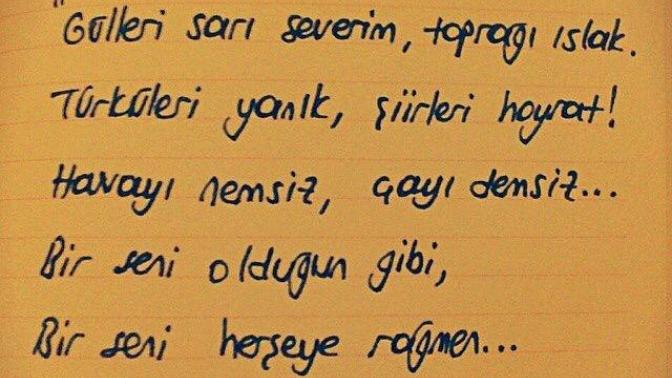 "Gülleri sarı severim, toprağı ıslak.
Türküleri yanık, şiirleri hoyrat!
Havayı nemsiz, çayı demsiz...
Bir seni olduğun gibi,
Bir seni herşeye rağmen...